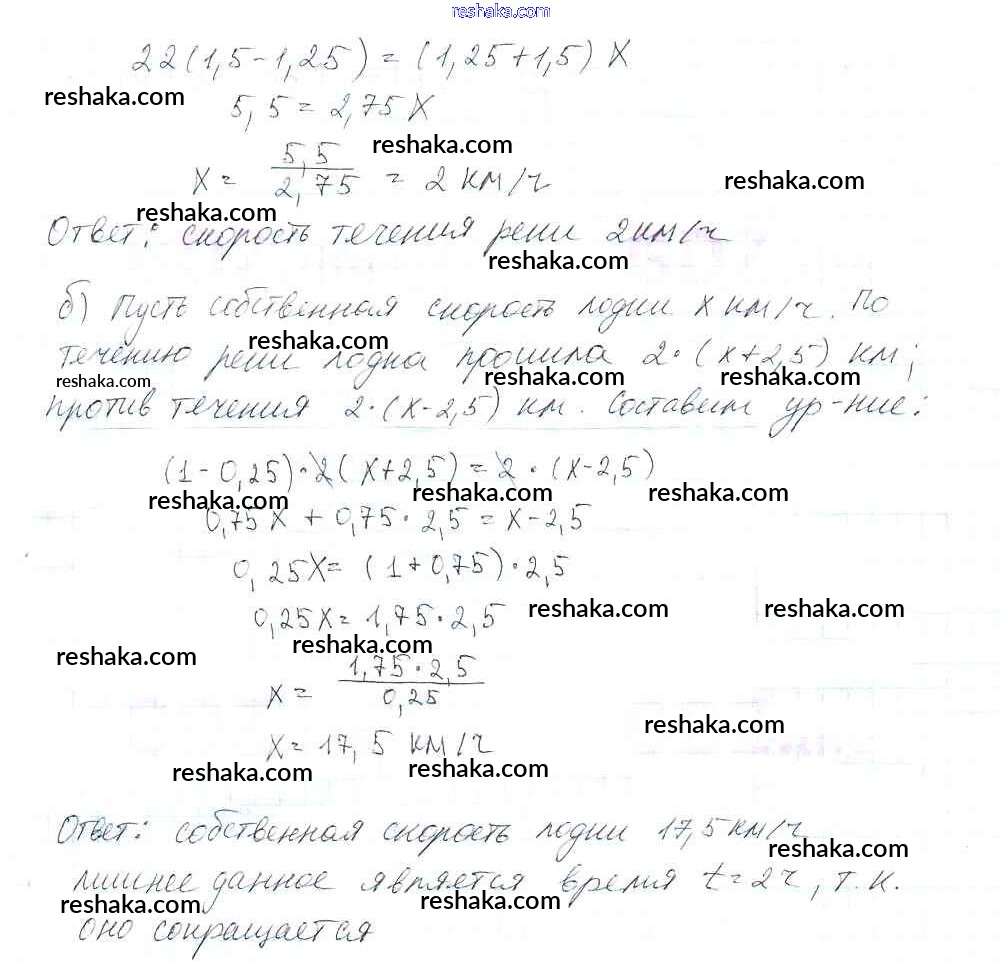 reshaka.com
22(1,5-1,25) = (1,25+1,5) X
reshaka.com
5,5 = 2,75X
reshaka.com
X = 5,5 / 2,75 = 2 км/ч
reshaka.com
reshaka.com
Ответ: скорость течения реки 2км/ч
reshaka.com
б) Пусть собственная скорость лодки X км/ч. По
reshaka.com
течению реки лодка прошла 2·(x+2,5) км;
reshaka.com reshaka.com reshaka.com
против течения 2·(x-2,5) км. Составим ур-ние:
(1-0,25)·2(x+2,5)=2·(x-2,5)
reshaka.com reshaka.com reshaka.com
0,75X + 0,75·2,5 = X-2,5
0,25X = (1+0,75)·2,5
0,25X = 1,75·2,5
reshaka.com reshaka.com
reshaka.com
reshaka.com
X = 1,75·2,5 / 0,25
reshaka.com
X = 17,5 км/ч
reshaka.com reshaka.com
Ответ: собственная скорость лодки 17,5 км/ч
reshaka.com
лишнее данное является время t=2ч, т.к.
reshaka.com reshaka.com
оно сокращается